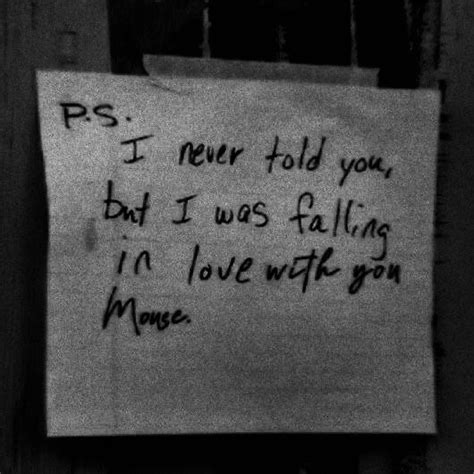 P.S.
I never told you,
but I was falling
in love with you
Mouse.